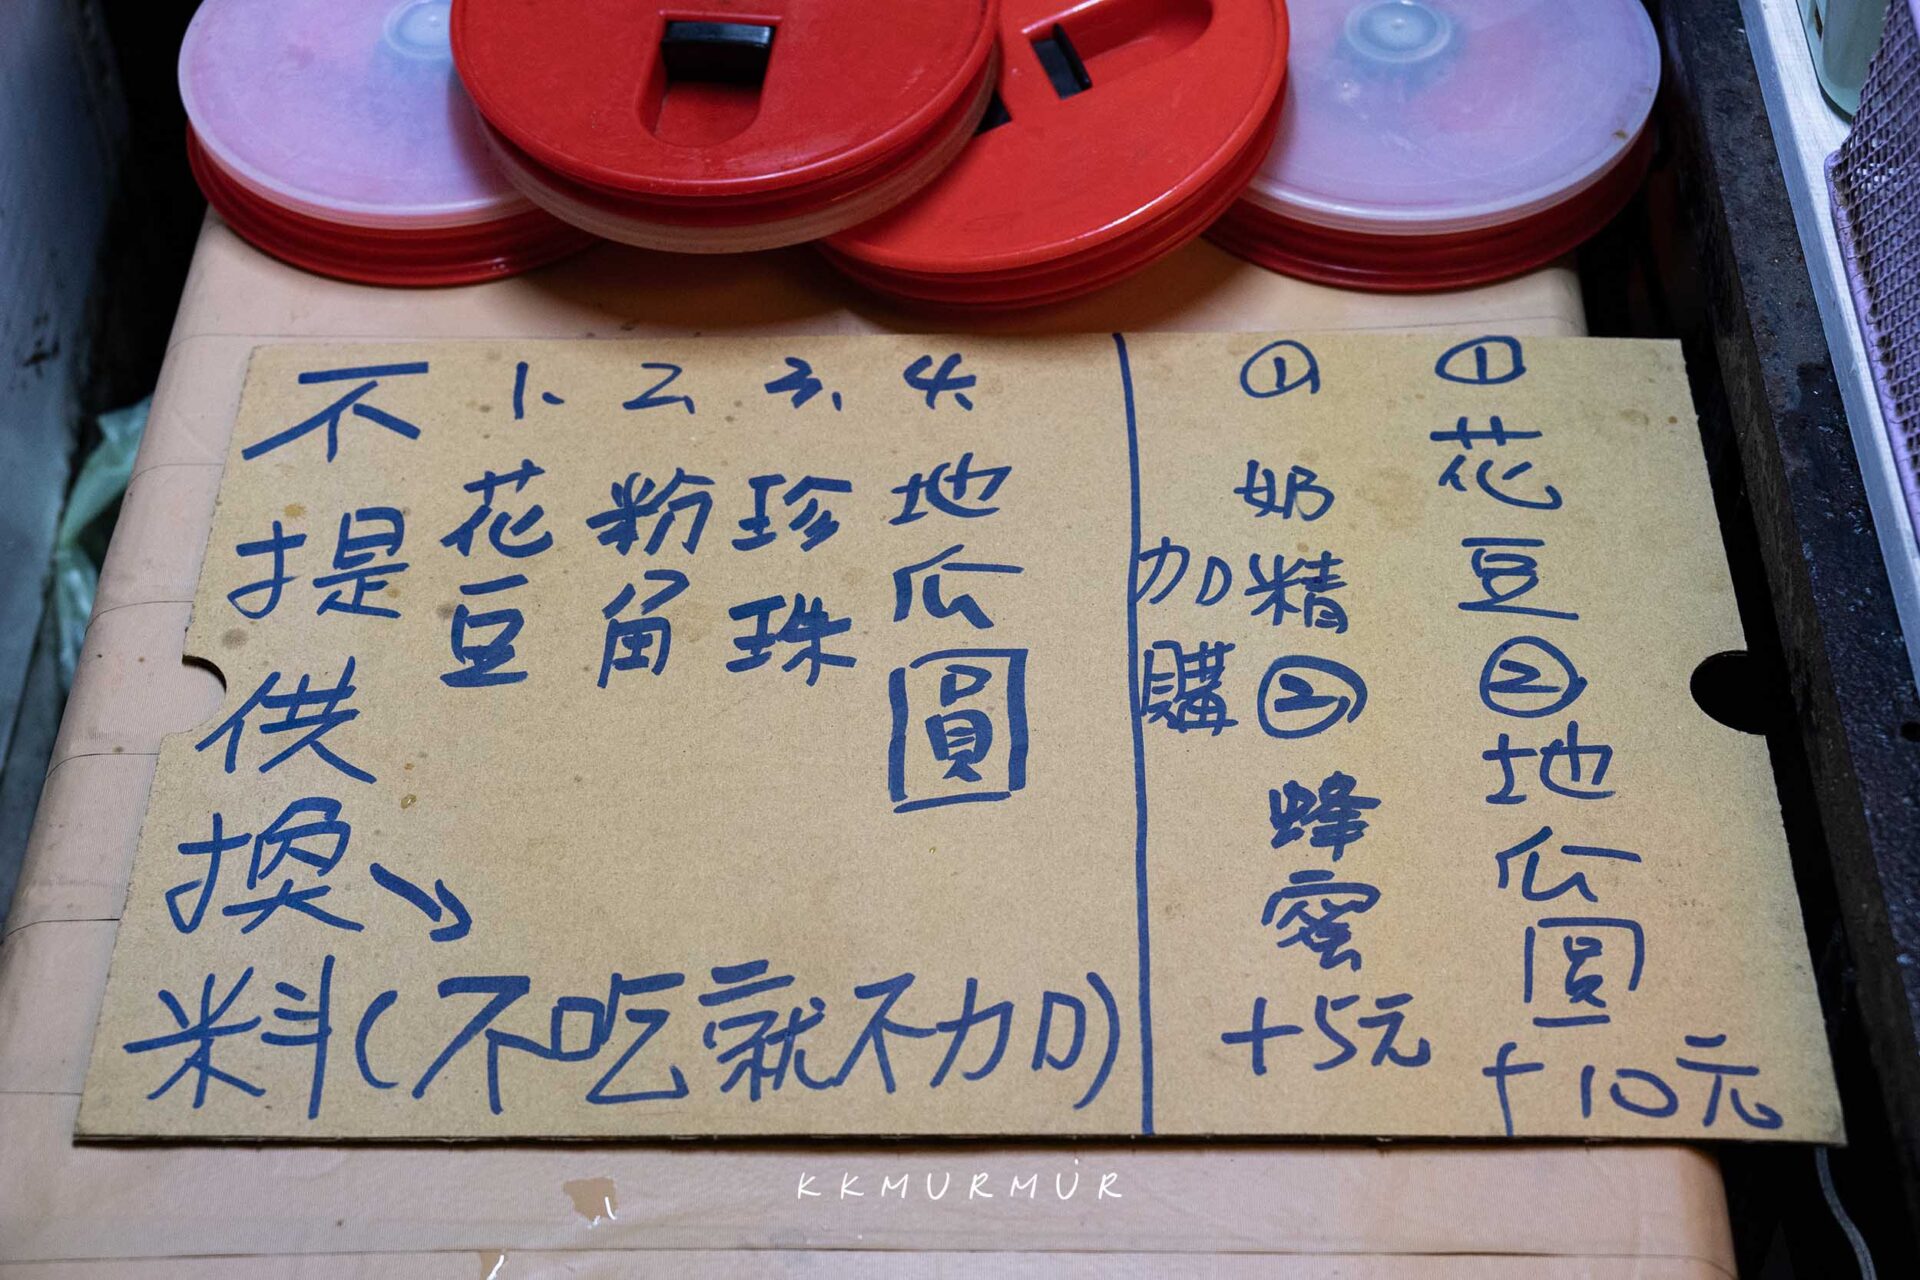 不提供換料(不吃就不加)
1、花豆
2、粉角
3、珍珠
4、地瓜圓
加購
①奶精②蜂蜜+5元
①花豆②地瓜圓+10元
KKMURMUR